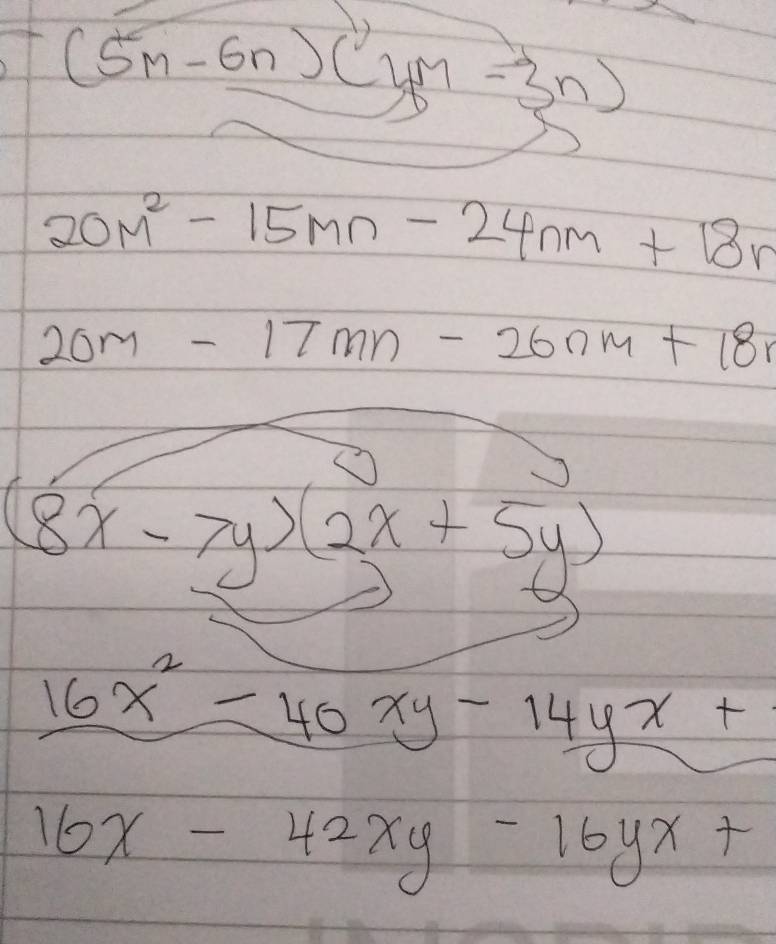 (5m - 6n)(4m - 3n)
20m² - 15mn - 24nm + 18n
20m - 17mn - 26nm + 18n
(8x - 7y)(2x + 5y)
16x² - 40xy - 14yx +
16x - 42xy - 16yx +